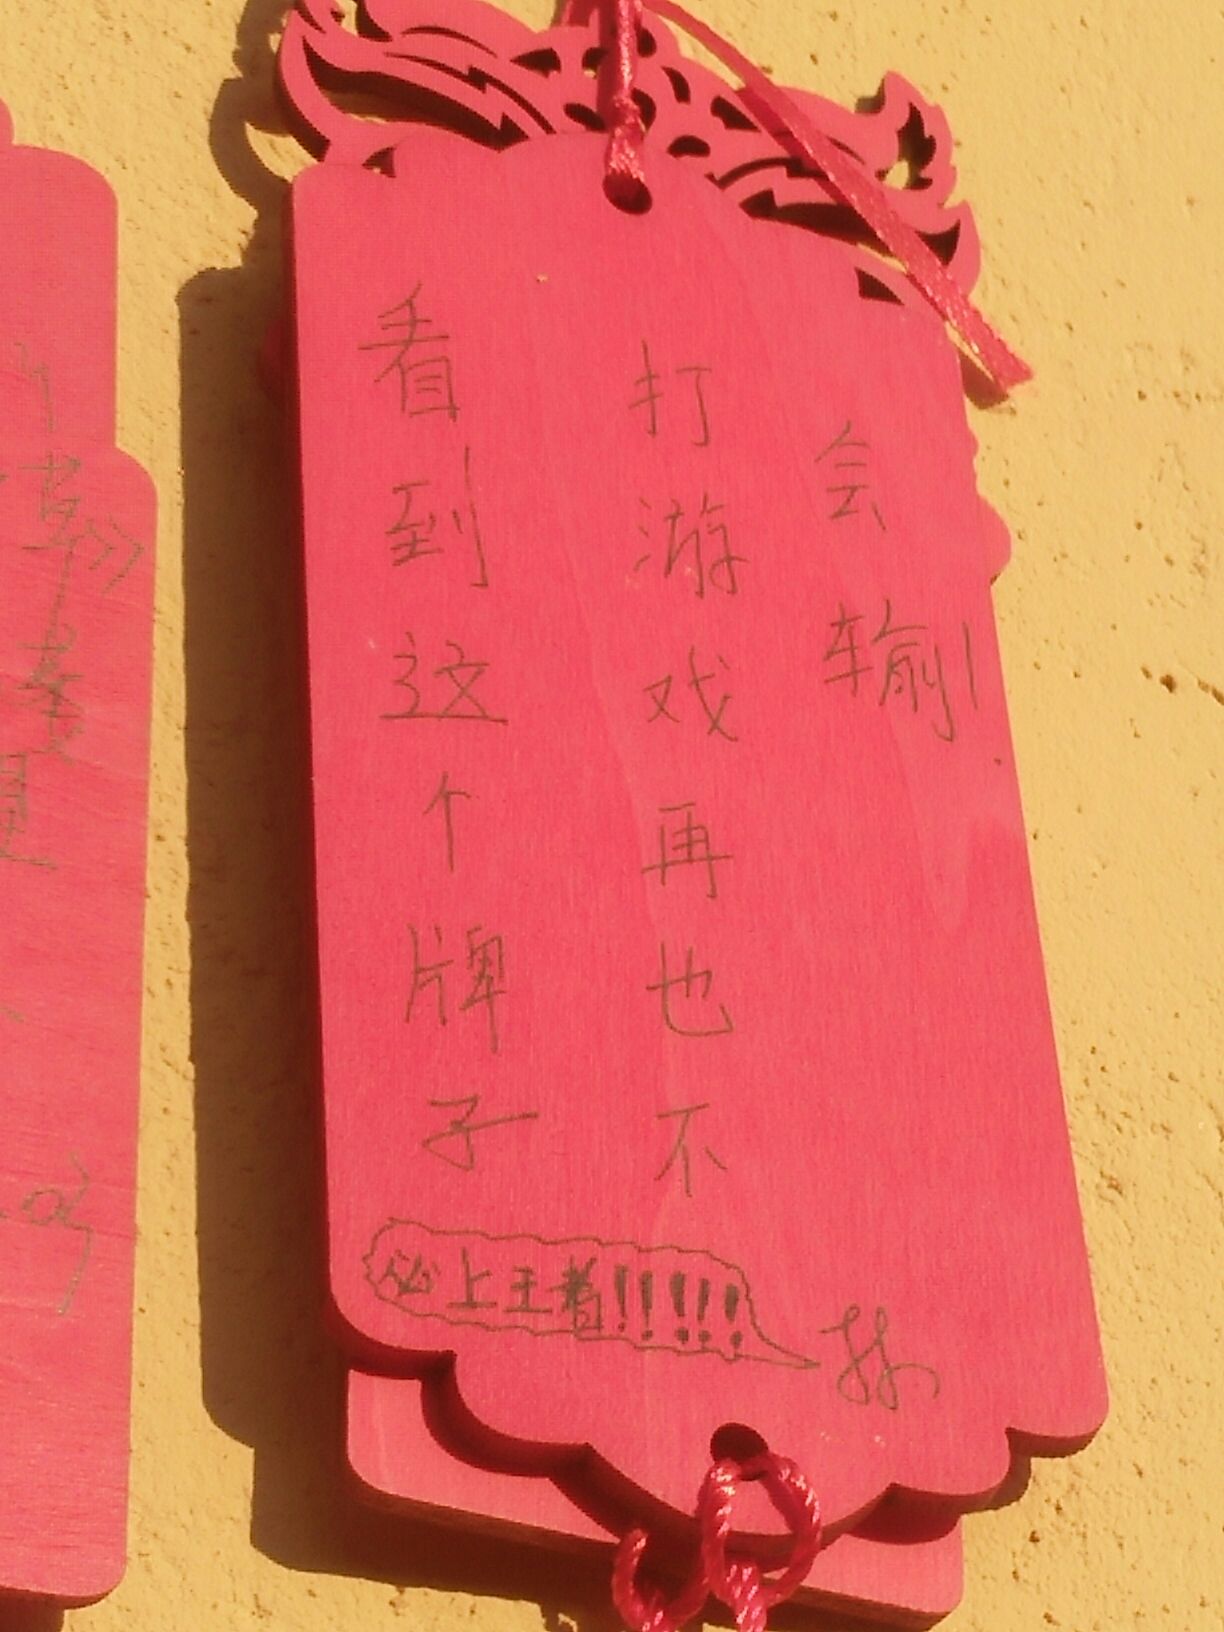 看到这个牌子
打游戏再也不
会输!
必上王者!!!!!